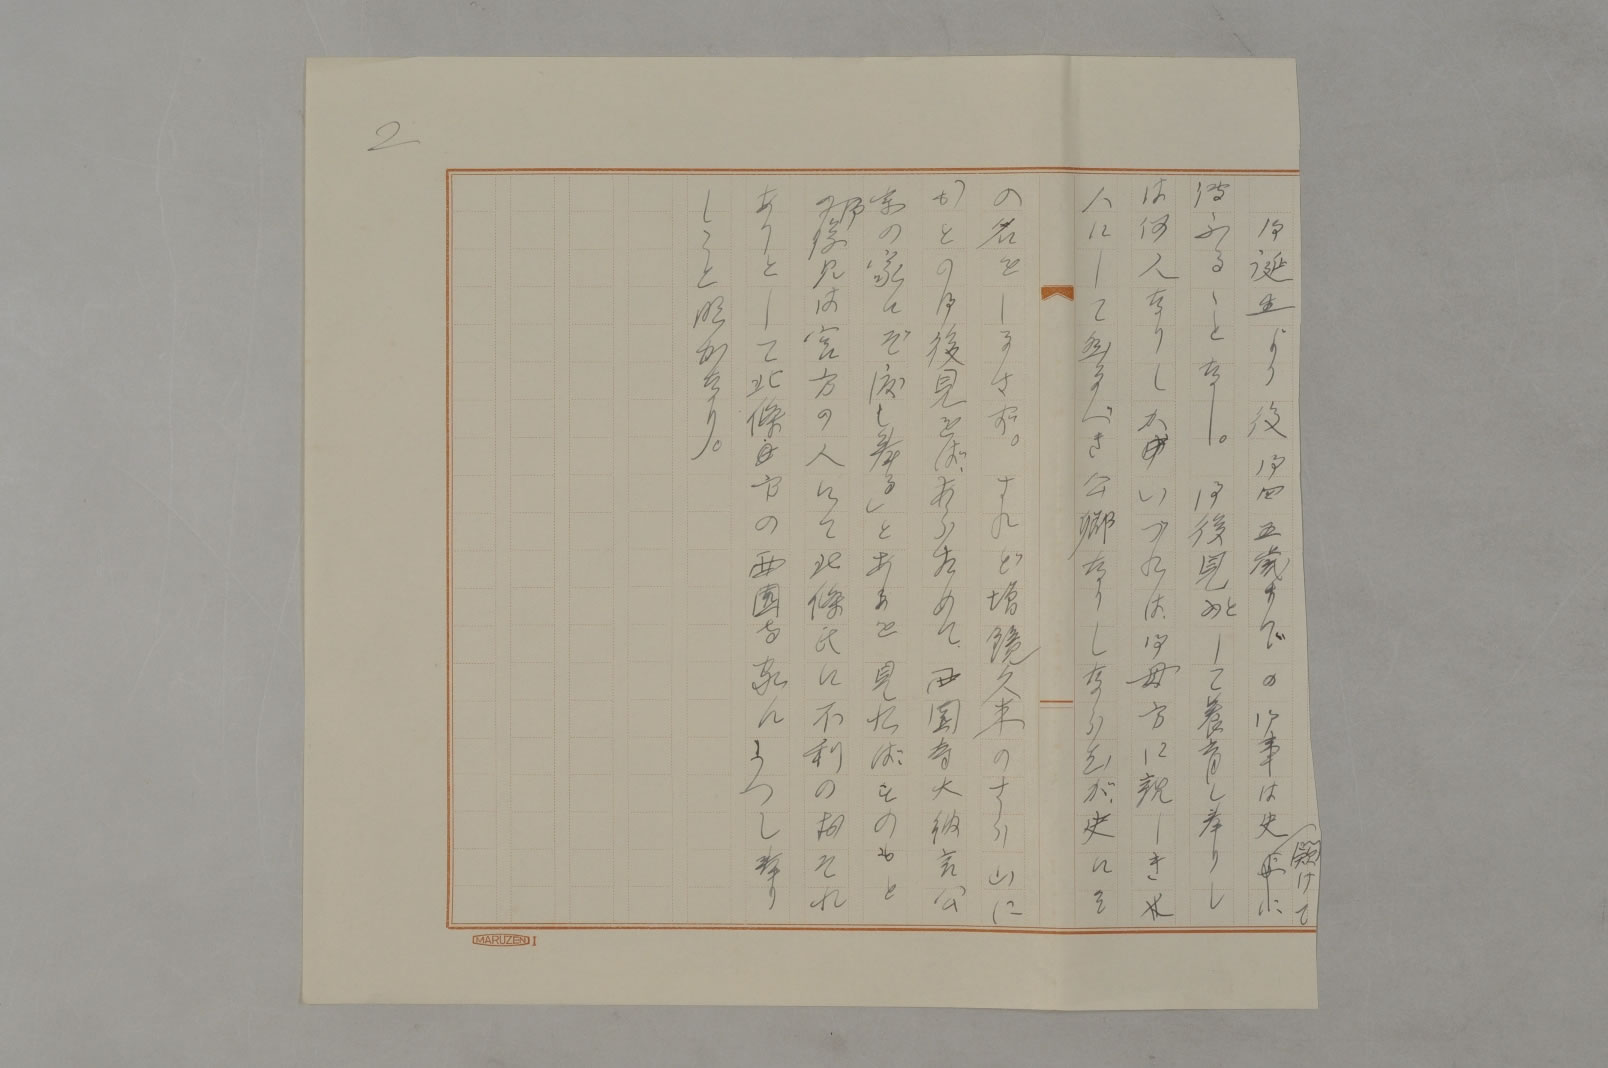 2
御誕生より後御四五歳までの御事は史
闕けて
傳ふることなし。御後見として養育し奉りし
は何人なりしかいづれは御母方に親しき
人にして然るべき公卿なりしならむが、史にそ
の名をしるさず。されど増鏡久米のさら山に
御後見をば、あらためて、西園寺大納言公
宗の家にぞ渡し奉る」とあるを見ればもとの
御後見は宮方の人にて北條氏に不利のおそれ
ありとして北條方の西園寺家にうつし奉り
しこと明かなり。
MARUZEN I